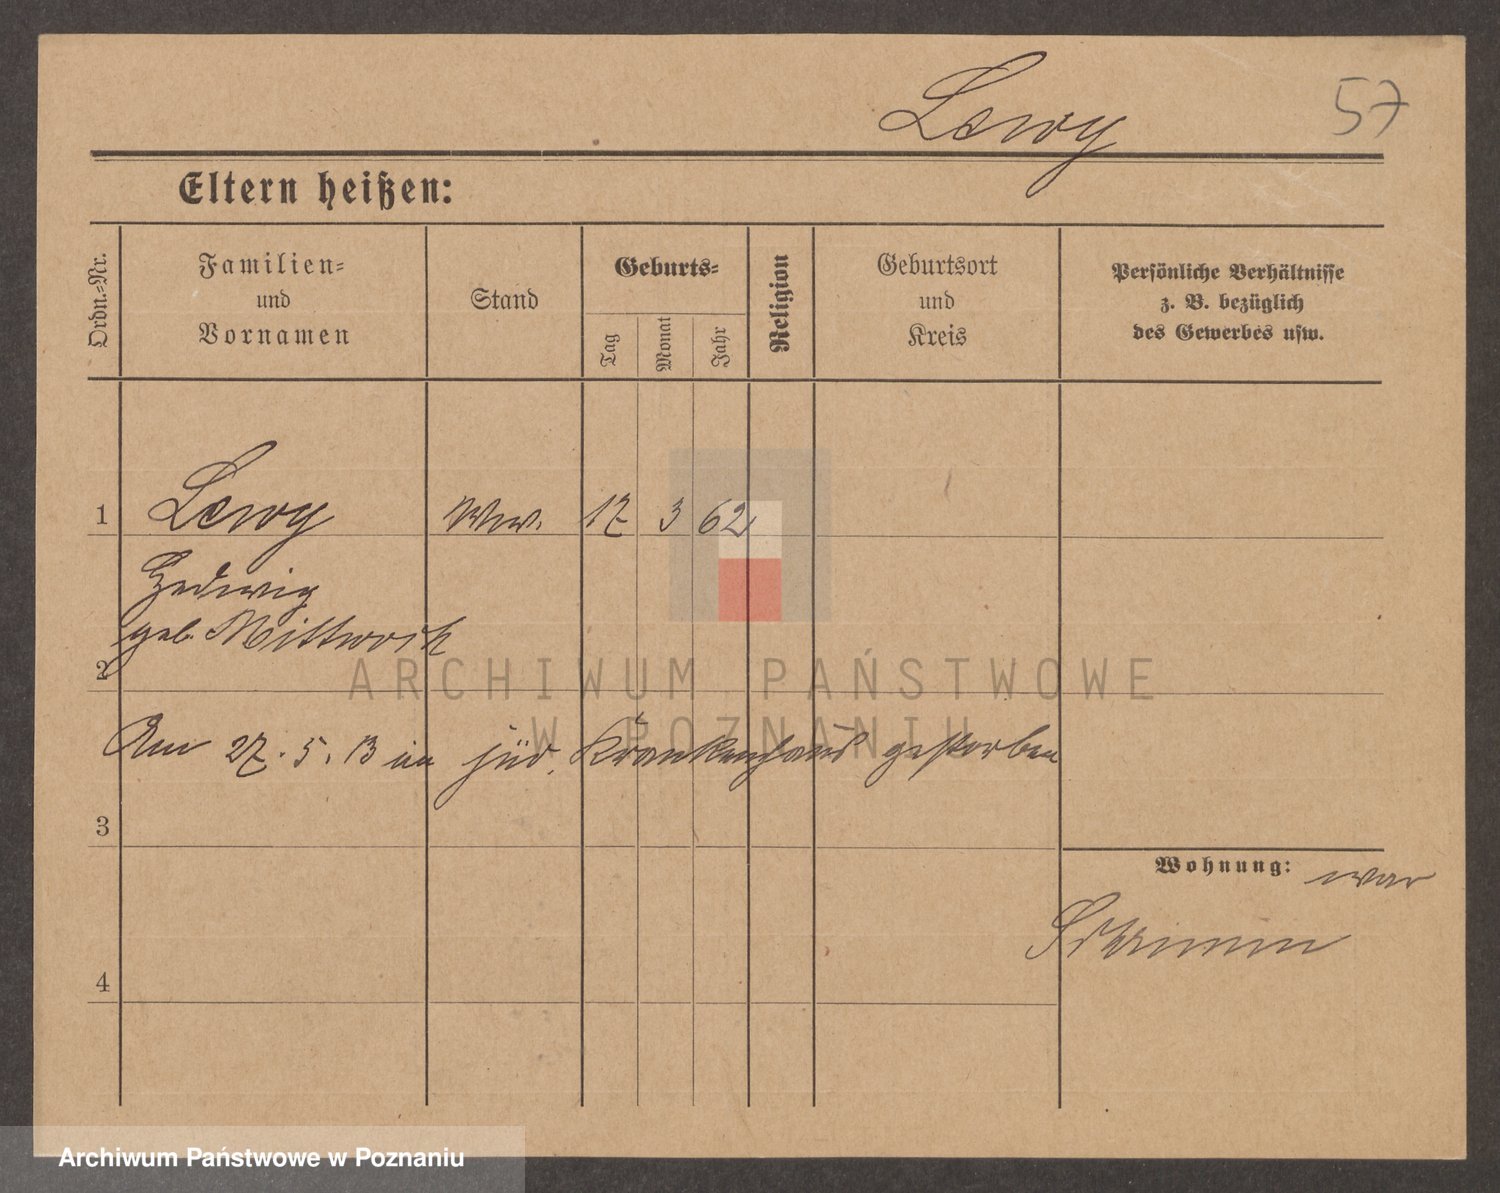 Lewy
57
Eltern heißen:
Ordn.=Nr.
Familien=
und
Vornamen
Stand
Geburts=
Tag
Monat
Jahr
Religion
Geburtsort
und
Kreis
Persönliche Verhältnisse
z. B. bezüglich
des Gewerbes usw.
1 Lewy Ww. 17 3 62
Hedwig
geb. Mittwoch
2
ARCHIWUM PAŃSTWOWE
W POZNANIU
Am 27. 5. 13 im jüd. Krankenhaus gestorben
3
Wohnung: war
Schrimm
4
Archiwum Państwowe w Poznaniu